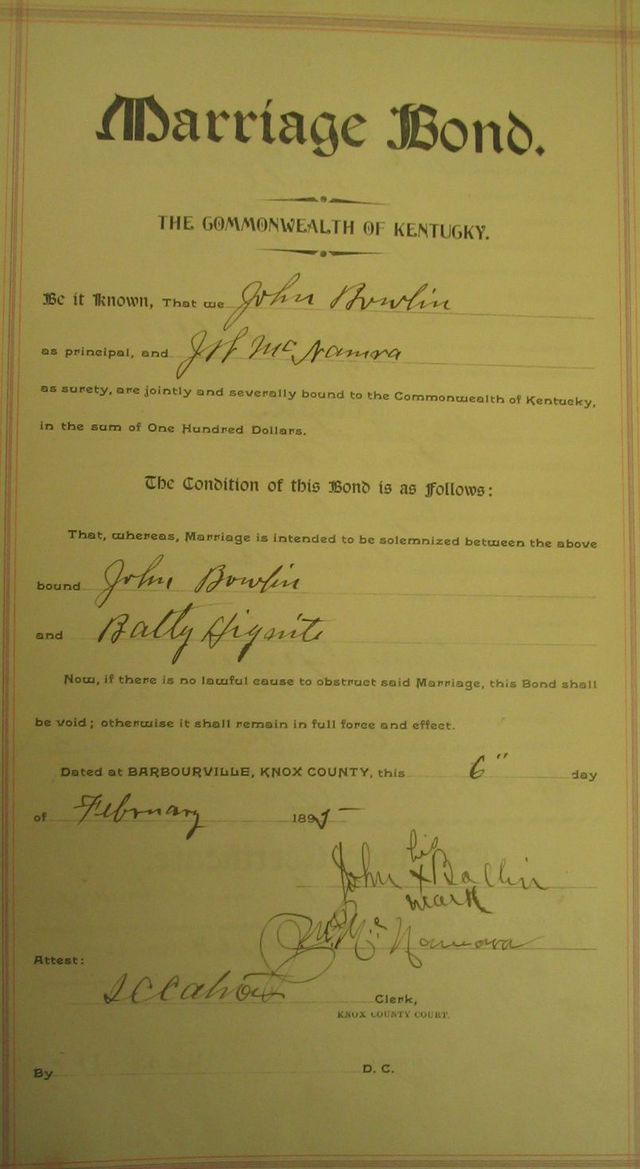 Marriage Bond.
THE COMMONWEALTH OF KENTUCKY.
Be it Known, That we John Bowlin
as principal, and J W McNamra
as surety, are jointly and severally bound to the Commonwealth of Kentucky,
in the sum of One Hundred Dollars.
The Condition of this Bond is as Follows:
That, whereas, Marriage is intended to be solemnized between the above
bound John Bowlin
and Batty Hignite
Now, if there is no lawful cause to obstruct said Marriage, this Bond shall
be void; otherwise it shall remain in full force and effect.
Dated at BARBOURVILLE, KNOX COUNTY, this 6" day
of February 1895
his
John x Bollin
mark
Mc Namara
Attest:
Clerk,
KNOX COUNTY COURT.
By D. C.